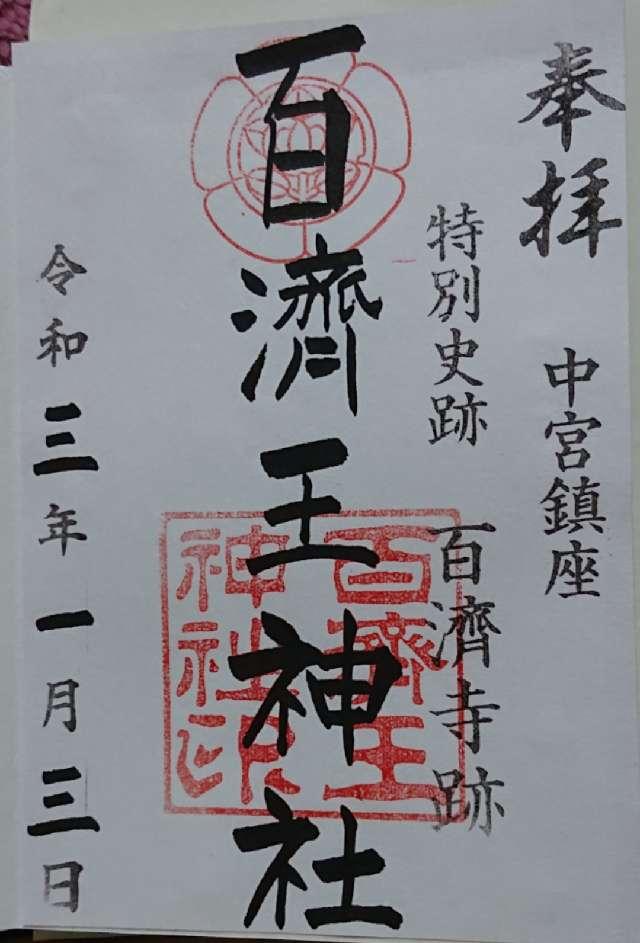 奉拝
中宮鎮座
特別史跡 百濟寺跡
百濟王神社
百濟王
神社印
令和三年一月三日